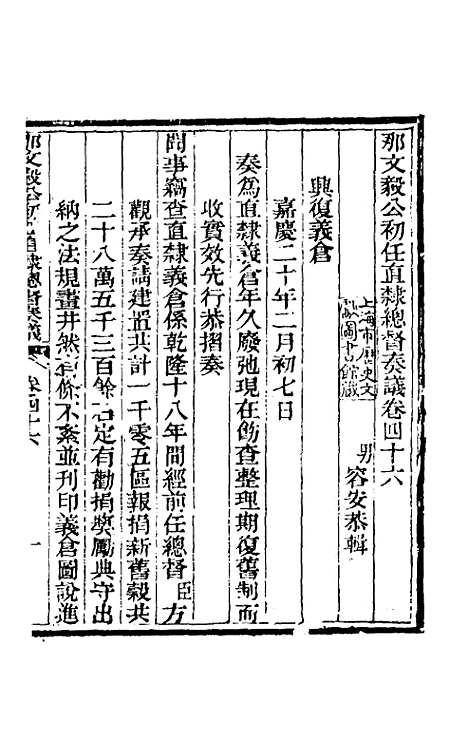 那文毅公初任直隸總督奏議卷四十六
上海市歷史文
獻圖書館藏
男 容安恭輯
興復義倉
嘉慶二十年二月初七日
奏爲直隸義倉年久廢弛現在飭查整理期復舊制而
收實效先行恭摺奏
聞事竊查直隸義倉係乾隆十八年間經前任總督臣方
觀承奏請建置共計一千零五區報捐新舊穀共
二十八萬五千三百餘石定有勸捐獎勵典守出
納之法規畫井然條不紊並刊印義倉圖說進
那文毅公初任直隸總督奏議 卷四十六 一